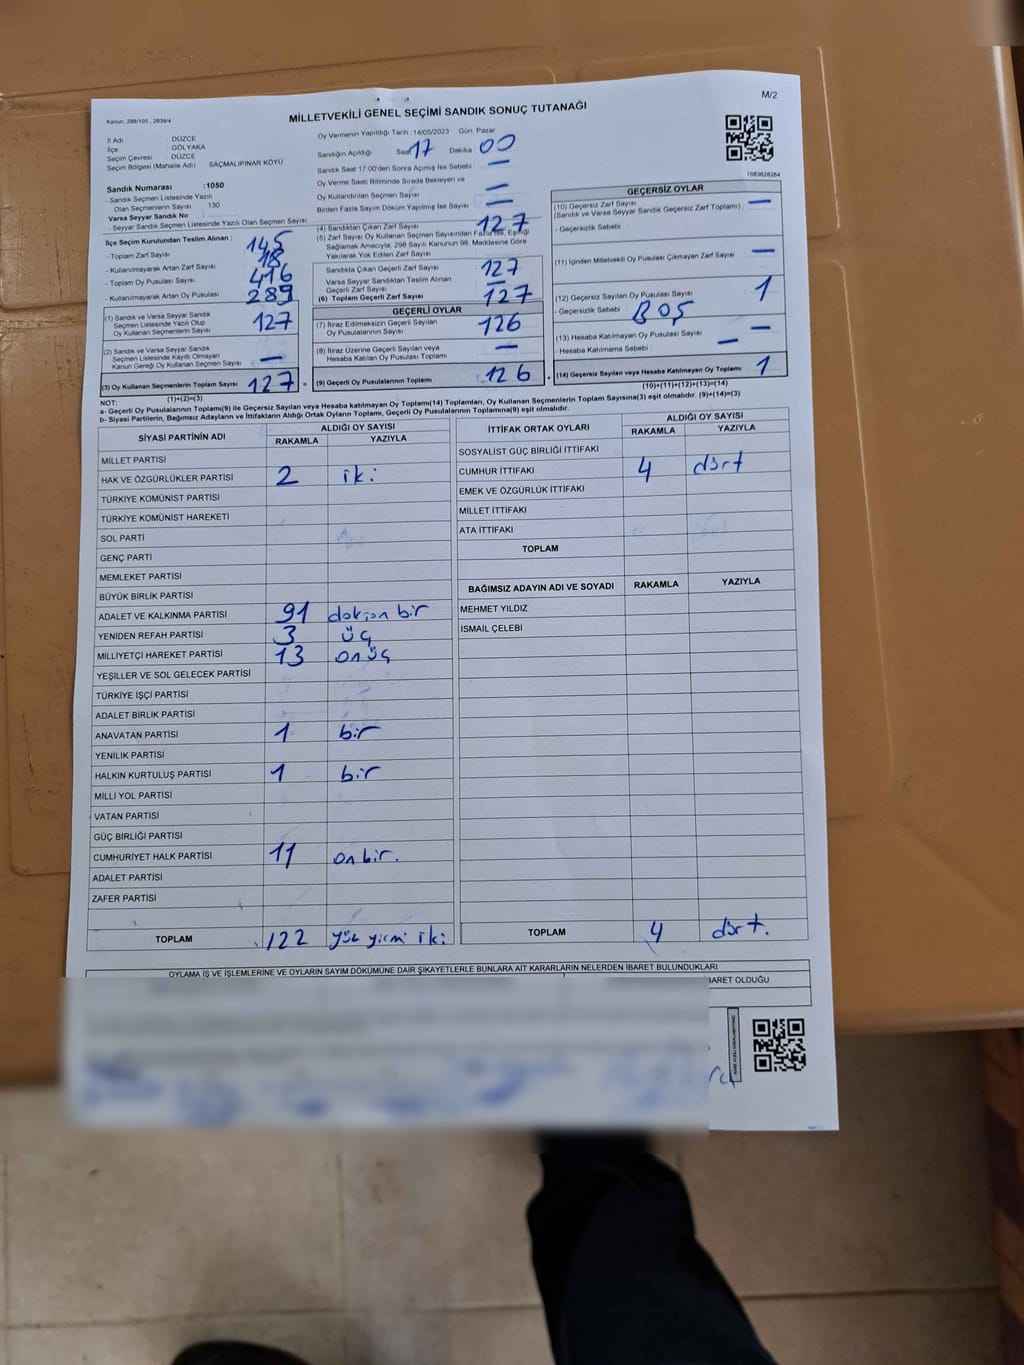 M/2
Kanun: 298/105 , 2839/4
MİLLETVEKİLİ GENEL SEÇİMİ SANDIK SONUÇ TUTANAĞI
İl Adı : DÜZCE
İlçe : GÖLYAKA
Seçim Çevresi : DÜZCE
Seçim Bölgesi (Mahalle Adı) : SAÇMALIPINAR KÖYÜ
Sandık Numarası :1050
- Sandık Seçmen Listesinde Yazılı
Olan Seçmenlerin Sayısı : 130
Varsa Seyyar Sandık No :
- Seyyar Sandık Seçmen Listesinde Yazılı Olan Seçmen Sayısı :
Oy Vermenin Yapıldığı Tarih : 14/05/2023 Gün: Pazar
Sandığın Açıldığı Saat 17 Dakika 00
Sandık Saat 17.00'den Sonra Açılmış İse Sebebi : —
Oy Verme Saati Bitiminde Sırada Bekleyen ve
Oy Kullandırılan Seçmen Sayısı : —
Birden Fazla Sayım Döküm Yapılmış İse Sayısı : —
1083628264
İlçe Seçim Kurulundan Teslim Alınan :
- Toplam Zarf Sayısı : 145
- Kullanılmayarak Artan Zarf Sayısı : 18
- Toplam Oy Pusulası Sayısı : 416
- Kullanılmayarak Artan Oy Pusulası : 289
(1) Sandık ve Varsa Seyyar Sandık
Seçmen Listesinde Yazılı Olup
Oy Kullanan Seçmenlerin Sayısı : 127
(2) Sandık ve Varsa Seyyar Sandık
Seçmen Listesinde Kayıtlı Olmayan
Kanun Gereği Oy Kullanan Seçmen Sayısı : —
(3) Oy Kullanan Seçmenlerin Toplam Sayısı : 127
(1)+(2)=(3)
(4) Sandıktan Çıkan Zarf Sayısı : 127
(5) Zarf Sayısı Oy Kullanan Seçmen Sayısından Fazla İse, Eşitliği
Sağlamak Amacıyla, 298 Sayılı Kanunun 98. Maddesine Göre
Yakılarak Yok Edilen Zarf Sayısı :
Sandıkta Çıkan Geçerli Zarf Sayısı : 127
Varsa Seyyar Sandıktan Teslim Alınan
Geçerli Zarf Sayısı : —
(6) Toplam Geçerli Zarf Sayısı : 127
GEÇERLİ OYLAR
(7) İtiraz Edilmeksizin Geçerli Sayılan
Oy Pusulalarının Sayısı : 126
(8) İtiraz Üzerine Geçerli Sayılan veya
Hesaba Katılan Oy Pusulası Toplamı : —
(9) Geçerli Oy Pusulalarının Toplamı : 126
GEÇERSİZ OYLAR
(10) Geçersiz Zarf Sayısı : —
(Sandık ve Varsa Seyyar Sandık Geçersiz Zarf Toplamı)
- Geçersizlik Sebebi :
(11) İçinden Milletvekili Oy Pusulası Çıkmayan Zarf Sayısı : —
(12) Geçersiz Sayılan Oy Pusulası Sayısı : 1
- Geçersizlik Sebebi : BOŞ
(13) Hesaba Katılmayan Oy Pusulası Sayısı : —
- Hesaba Katılmama Sebebi : —
(14) Geçersiz Sayılan veya Hesaba Katılmayan Oy Toplamı : 1
(10)+(11)+(12)+(13)=(14)
NOT:
a- Geçerli Oy Pusulalarının Toplamı(9) ile Geçersiz Sayılan veya Hesaba Katılmayan Oy Toplamı(14) Toplamları, Oy Kullanan Seçmenlerin Toplam Sayısına(3) eşit olmalıdır. (9)+(14)=(3)
b- Siyasi Partilerin, Bağımsız Adayların ve İttifakların Aldığı Ortak Oyların Toplamı, Geçerli Oy Pusulalarının Toplamına(9) eşit olmalıdır.
SİYASİ PARTİNİN ADI ALDIĞI OY SAYISI
RAKAMLA YAZIYLA
MİLLET PARTİSİ
HAK VE ÖZGÜRLÜKLER PARTİSİ 2 iki
TÜRKİYE KOMÜNİST PARTİSİ
TÜRKİYE KOMÜNİST HAREKETİ
SOL PARTİ
GENÇ PARTİ
MEMLEKET PARTİSİ
BÜYÜK BİRLİK PARTİSİ
ADALET VE KALKINMA PARTİSİ 91 doksan bir
YENİDEN REFAH PARTİSİ 3 üç
MİLLİYETÇİ HAREKET PARTİSİ 13 onüç
YEŞİLLER VE SOL GELECEK PARTİSİ
TÜRKİYE İŞÇİ PARTİSİ
ADALET BİRLİK PARTİSİ
ANAVATAN PARTİSİ 1 bir
YENİLİK PARTİSİ
HALKIN KURTULUŞ PARTİSİ 1 bir
MİLLİ YOL PARTİSİ
VATAN PARTİSİ
GÜÇ BİRLİĞİ PARTİSİ
CUMHURİYET HALK PARTİSİ 11 onbir.
ADALET PARTİSİ
ZAFER PARTİSİ
TOPLAM 122 yüz yirmi iki
İTTİFAK ORTAK OYLARI ALDIĞI OY SAYISI
RAKAMLA YAZIYLA
SOSYALİST GÜÇ BİRLİĞİ İTTİFAKI
CUMHUR İTTİFAKI 4 dört
EMEK VE ÖZGÜRLÜK İTTİFAKI
MİLLET İTTİFAKI
ATA İTTİFAKI
TOPLAM
BAĞIMSIZ ADAYIN ADI VE SOYADI RAKAMLA YAZIYLA
MEHMET YILDIZ
İSMAİL ÇELEBİ
TOPLAM 4 dört.
OYLAMA İŞ VE İŞLEMLERİNE VE OYLARIN SAYIM DÖKÜMÜNE DAİR ŞİKAYETLERLE BUNLARA AİT KARARLARIN NELERDEN İBARET BULUNDUKLARI
BARET OLDUĞU